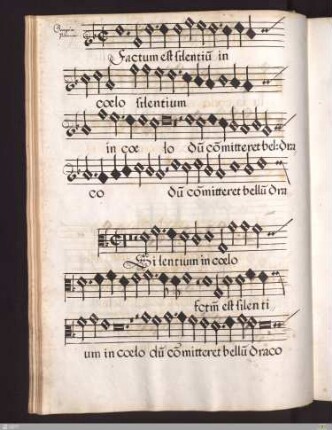 Factum est silentiū in
cœlo silentium
in cœ lo dū cōmitteret bel: dra
co dū cōmitteret bellū dra
Si lentium in cœlo
factū est silen ti
um in cœlo dū cōmitteret bellū draco